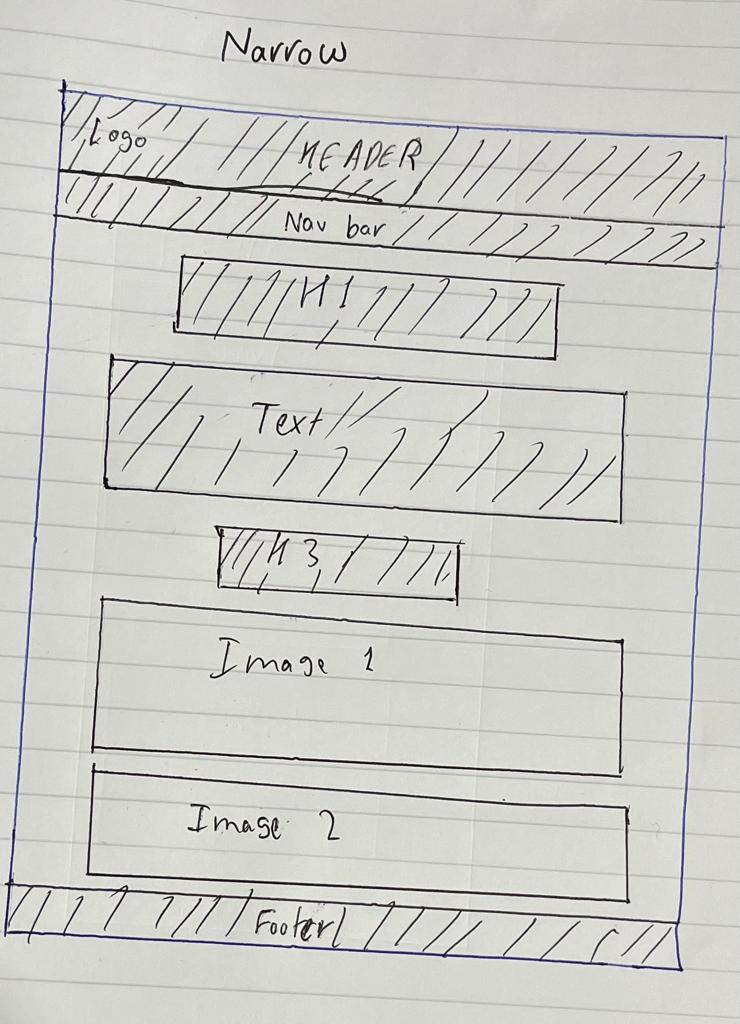 Narrow
Logo
HEADER
Nav bar
H1
Text
H3
Image 1
Image 2
Footer